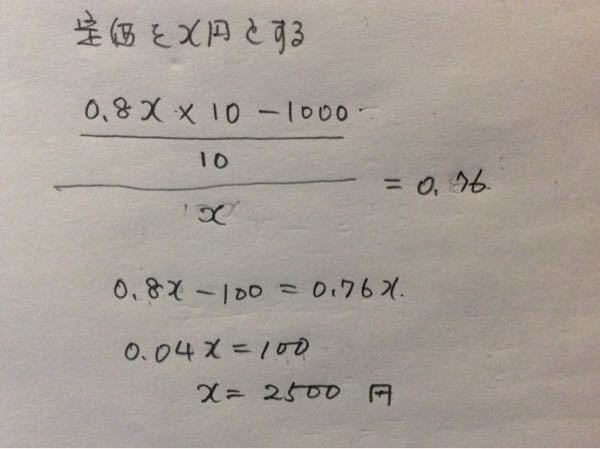 定価をx円とする
0.8x × 10 - 1000
10
x
= 0.76
0.8x - 100 = 0.76x.
0.04x = 100
x = 2500 円